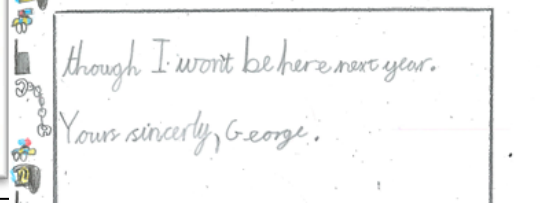 though I won't be here next year.
Yours sincerly, George.